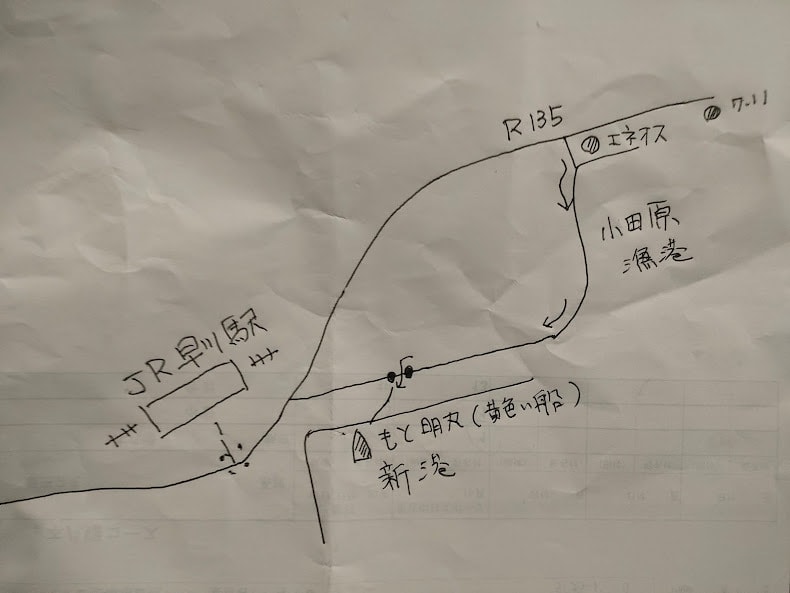 R135
7.11
エネオス
小田原
漁港
JR早川駅
もと明丸(黄色い船)
新港